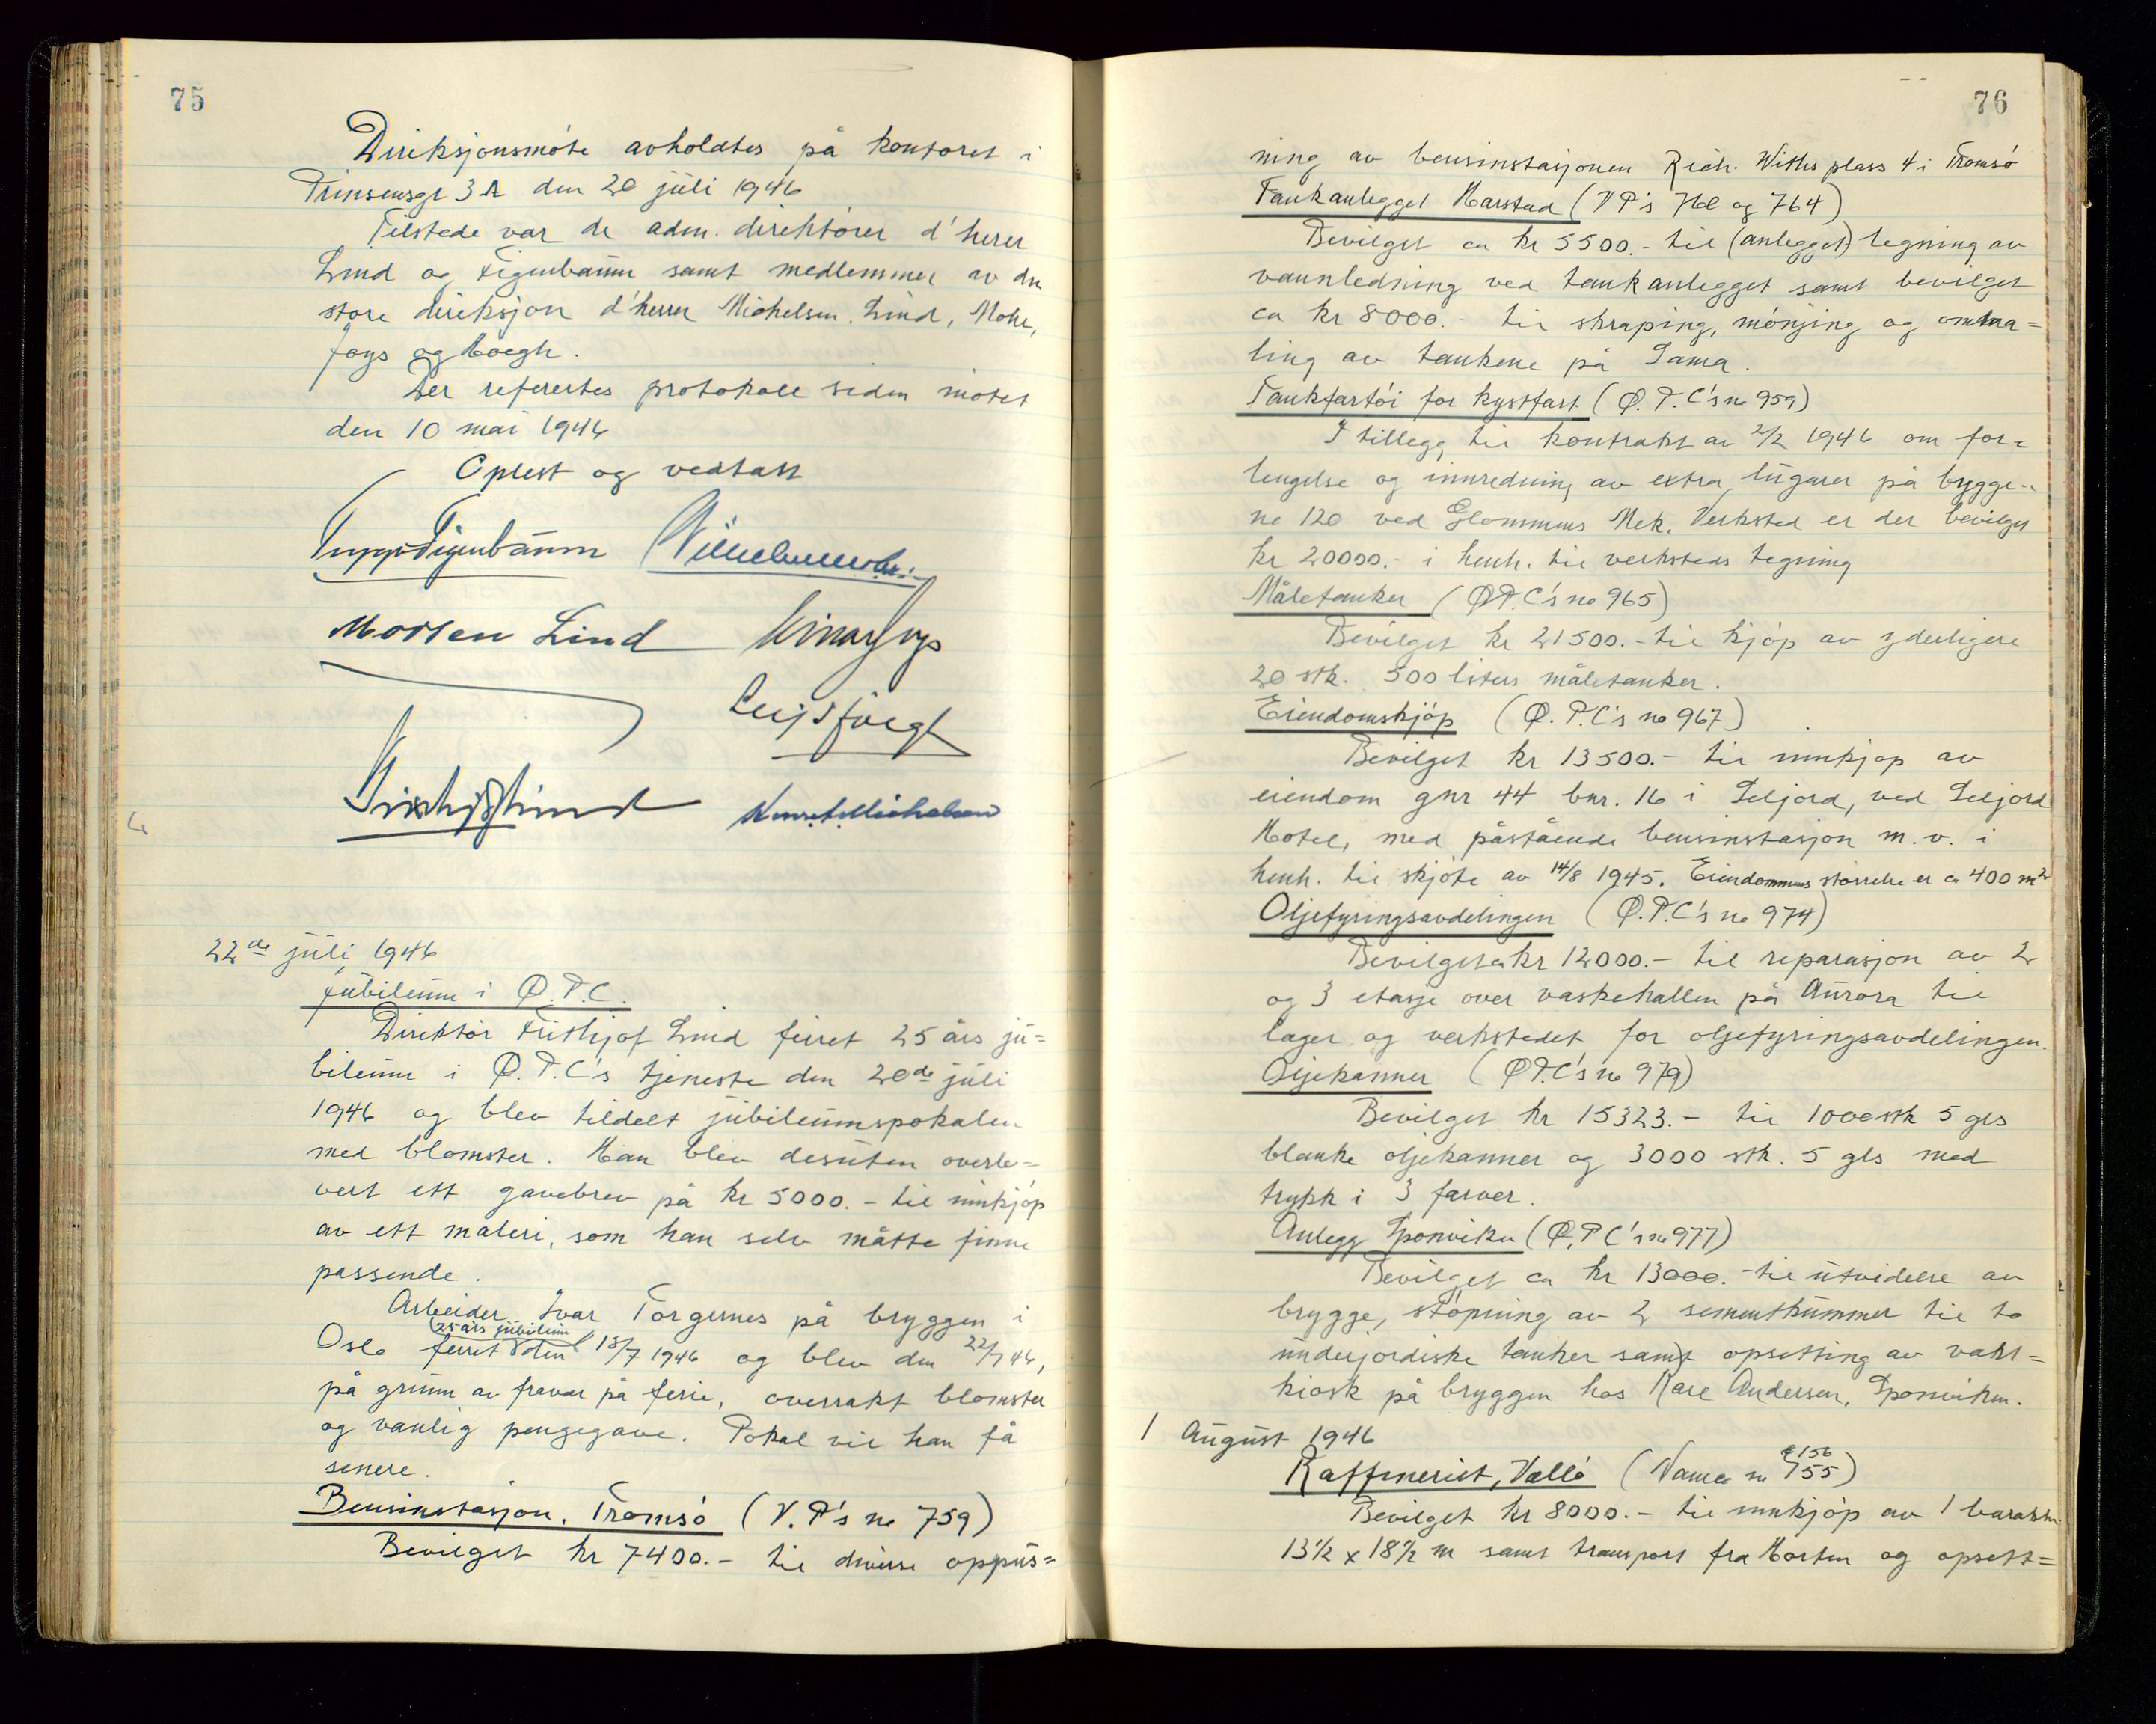 75
Direksjonsmøte avholdtes på kontoret i
Prinsensgt 3A den 20 juli 1946
Tilstede var de adm. direktører d'herrer
Lind og Figenbaum samt medlemmer av den
store direksjon d'herrer Michelsen, Lind, Mohr,
Joys og Høegh.
Der refertes protokoll siden møtet
den 10 mai 1946
Oplest og vedtatt
Figenbaum Wilhelm Mohr
Morten Lind Joys
Leif Høegh
Frithjof Lind Michelsen
22de juli 1946
Jubileum i Ø.P.C.
Direktør Frithjof Lind feiret 25 års ju=
bileum i Ø.P.C's tjeneste den 20de juli
1946 og blev tildelt jubileumspokalen
med blomster. Han blev desuten overle=
vert ett gavebrev på kr 5000.- til innkjøp
av ett maleri, som han selv måtte finne
passende.
Arbeider Ivar Torgernes på bryggen i
25 års jubileum
Oslo feiret den 18/7 1946 og blev den 22/7 46,
på grunn av fravær på ferie, overrakt blomster
og vanlig pengegave. Pokal vil han få
senere.
Bensinstasjon, Tromsø (V.P's no 759)
Bevilget kr 7400.- til diverse oppus=
76
ning av bensinstasjonen Rich. Withs plass 4 i Tromsø
Tankanlegget Harstad (VP's og 764)
Bevilget ca kr 5500.- til (anlegget) legning av
vannledning ved tankanlegget samt bevilget
ca kr 8000.- til skraping, mønjing og omma=
ling av tankene på Sama.
Tankfartøi for kystfart (Ø.P.C's no 959)
I tillegg til kontrakt av 2/2 1946 om for=
lengelse og innredning av extra lugarer på bygge-
no 120 ved Glommens Mek. Verksted er der bevilget
kr 20000.- i henh. til verksteds tegning
Måletanker (ØP.C's no 965)
Bevilget kr 21500.- til kjøp av yderligere
20 stk. 500 liters måletanker.
Eiendomskjøp (Ø.P.C's no 967)
Bevilget kr 13500.- til innkjøp av
eiendom gnr 44 bnr. 16 i Seljord, ved Seljord
Hotel, med påstående bensinstasjon m.v. i
henh. til skjøte av 14/8 1945. Eiendommens størrelse er ca 400 m2
Oljefyringsavdelingen (Ø.P.C's no 974)
Bevilget ca kr 12000.- til reparasjon av 2
og 3 etasje over vaskehallen på Aurora til
lager og verkstedet for oljefyringsavdelingen.
Oljekanner (ØP.C's no 979)
Bevilget kr 15323.- til 1000 stk 5 gls
blanke oljekanner og 3000 stk. 5 gls med
trykk i 3 farver.
Anlegg Sponviken (Ø.P.C's no 977)
Bevilget ca kr 13000.- til utvidelse av
brygge, støpning av 2 sementkummer til to
underjordiske tanker samt opsetting av vakt=
kiosk på bryggen hos Kåre Andersen, Sponviken.
1 August 1946
Raffineriet, Vallø (Vama no 755 & 156)
Bevilget kr 8000.- til innkjøp av 1 barakke
13 1/2 x 18 1/2 m samt transport fra Horten og opsett=